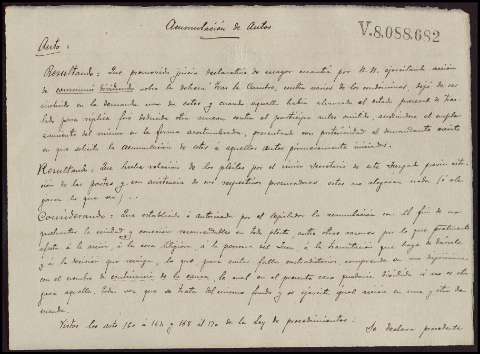 Acumulación de Autos
V.8.088.682
Auto:
Resultando: Que promovido juicio declarativo de mayor cuantía por N. N. ejercitando acción
de communi dividundo sobre la dehesa tras la Cumbre, contra varios de los condominos, dejó de ser
incluido en la demanda uno de estos y cuando aquella había alcanzado el estado procesal de tras-
lado para replica fué deducida otra nueva contra el participe antes omitido, acordandose el empla-
zamiento del mismo en la forma acostumbrada, presentando con posterioridad el demandante escrito
en que solicita la acumulación de estos á aquellos autos primeramente iniciados.
Resultando: Que hecha relación de los pleitos por el unico Secretario de este Juzgado previa cita-
ción de las partes y con asistencia de sus respectivos procuradores estos no alegaron nada (ó ale-
garon lo que sea) . .
Considerando: Que establecida ó autorizada por el legislador la acumulación con el fin de no
quebrantar la unidad y conexion recomendables en todo pleito, entre otras razones por lo que
afecta á la acción, á la cosa litigiosa, á la persona del Juez, á la tramitación que haya de dársele
y á la decisión que recaiga, lo que para evitar fallos contradictorios, comprende en una
con el nombre de continencia de la causa, la cual en el presente caso pudiera dividirse á no
para aquella, toda vez que se trata del mismo fundo y se ejercita igual acción en una y otra de-
manda.
Vistos los arts 160 á 164 y 168 al 170 de la Ley de procedimientos.
Se declara procedente